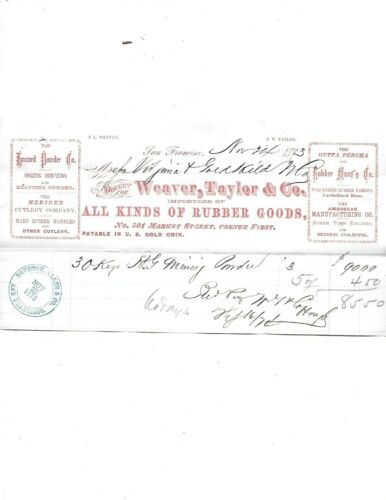 P. L. WEAVER.
J. W. TAYLOR.
San Francisco, Nov 24 1873
THE
Hazard Powder Co.
SPORTING
AND
BLASTING POWDER.
THE
MERIDEN
CUTLERY COMPANY.
HARD RUBBER HANDLES
AND
OTHER CUTLERY.
Virginia & Gold Hill
BOUGHT OF
Weaver, Taylor & Co.
IMPORTERS OF
ALL KINDS OF RUBBER GOODS,
No. 501 MARKET STREET, CORNER FIRST.
PAYABLE IN U. S. GOLD COIN.
THE
GUTTA PERCHA
AND
Rubber Manf'g Co.
VULCANIZED RUBBER FABRICS,
Carbolized Hose.
AMOSKEAG
MANUFACTURING CO.
STEAM FIRE ENGINES
AND
HOSE CARTS.
30 Kegs Mining Powder 3 $90 00
5% 4 50
85 50
60 days
NOV
1873